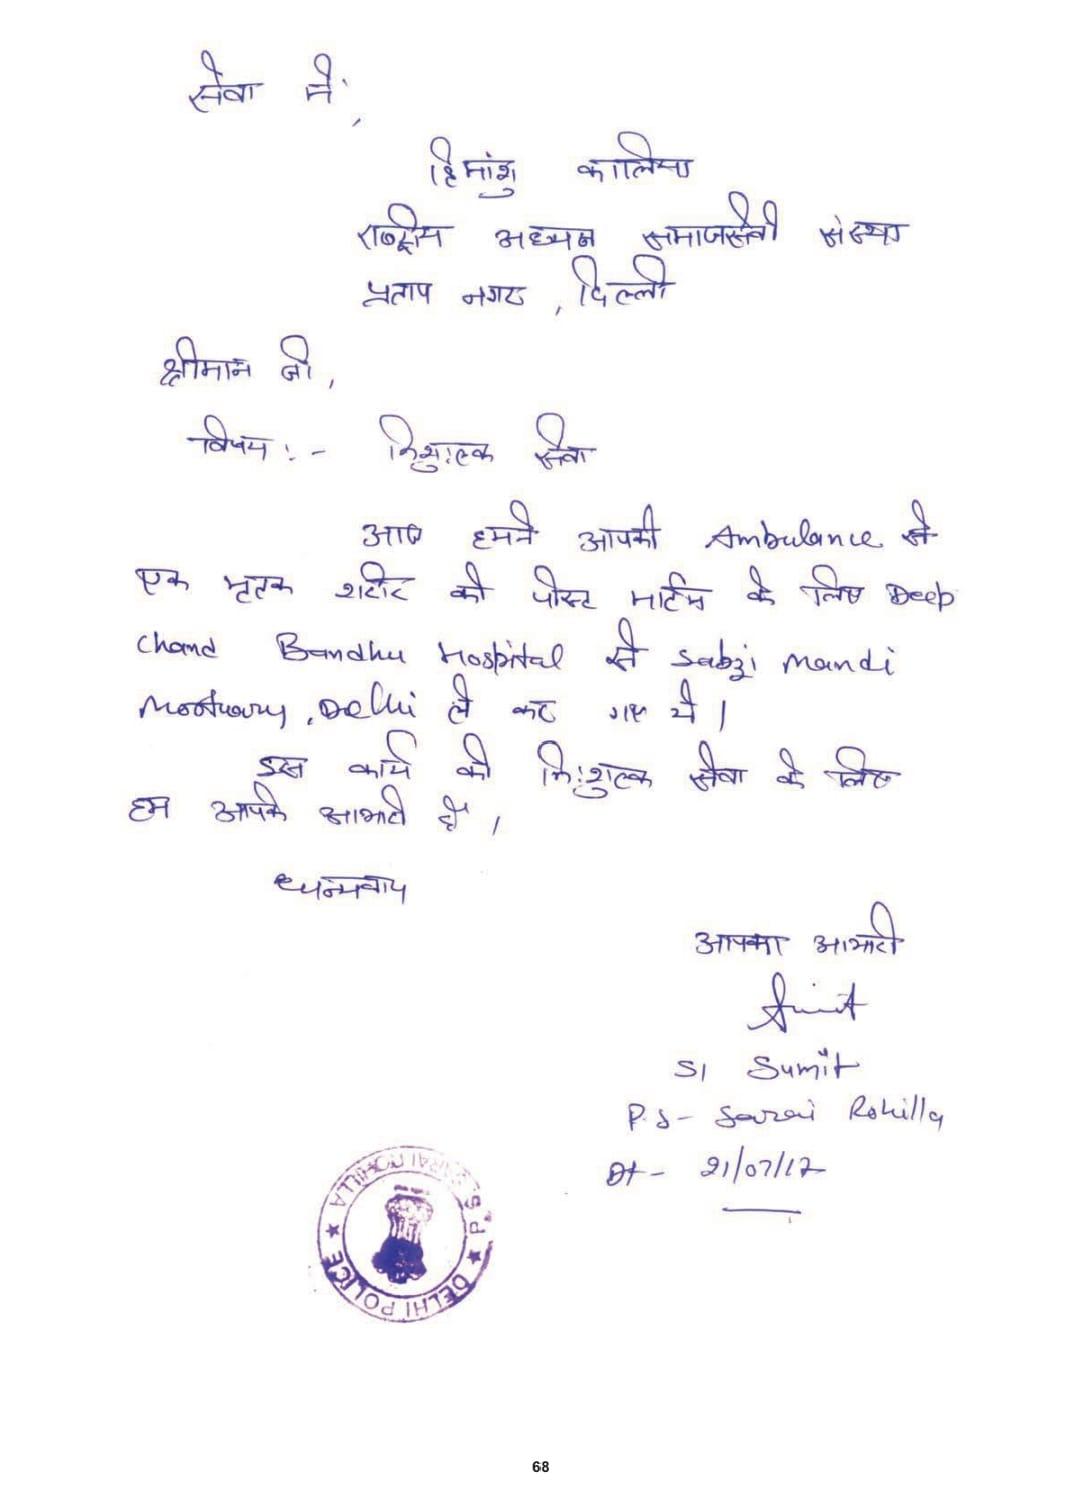 सेवा में,
हिमांशु कालिया
राष्ट्रीय अध्यक्ष समाजसेवी संस्था
प्रताप नगर, दिल्ली
श्रीमान जी,
विषय :- निशुःल्क सेवा
आज हमने आपकी Ambulance से
एक मृतक शरीर को पोस्ट मार्टम के लिए Deep
Chand Bandhu Hospital से Sabzi Mandi
Mortuary, Delhi ले कर गए थे।
इस कार्य की निःशुल्क सेवा के लिए
हम आपके आभारी हैं।
धन्यवाद
आपका आभारी
Sumit
SI Sumit
P.S - Sarai Rohilla
Dt - 21/07/17
P.S. SARAI ROHILLA
★ DELHI POLICE ★
68